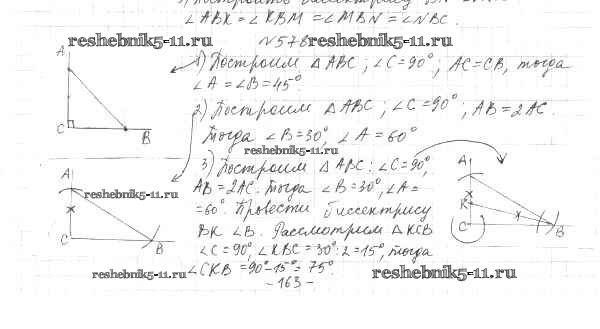 ∠ABK = ∠KBM = ∠MBN = ∠NBC.
reshebnik5-11.ru
№578
1) Построим △ABC; ∠C=90°; AC=CB, тогда
∠A=∠B=45°.
2) Построим △ABC; ∠C=90°; AB=2AC.
Тогда ∠B=30° ∠A=60°
reshebnik5-11.ru
3) Построим △ABC: ∠C=90°,
AB=2AC. Тогда ∠B=30°, ∠A=
=60°. Провести биссектрису
BK ∠B. Рассмотрим △KCB
∠C=90°, ∠KBC=30°:2=15°, тогда
∠CKB=90°-15°=75°.
-163-
A
C
B
reshebnik5-11.ru
A
C
B
reshebnik5-11.ru
A
K
C
B
reshebnik5-11.ru